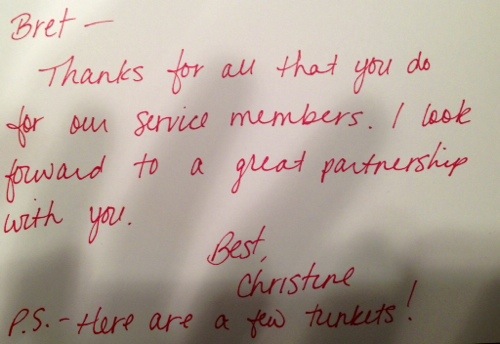 Bret -
Thanks for all that you do
for our service members. I look
forward to a great partnership
with you.
Best,
Christine
P.S. - Here are a few trinkets!